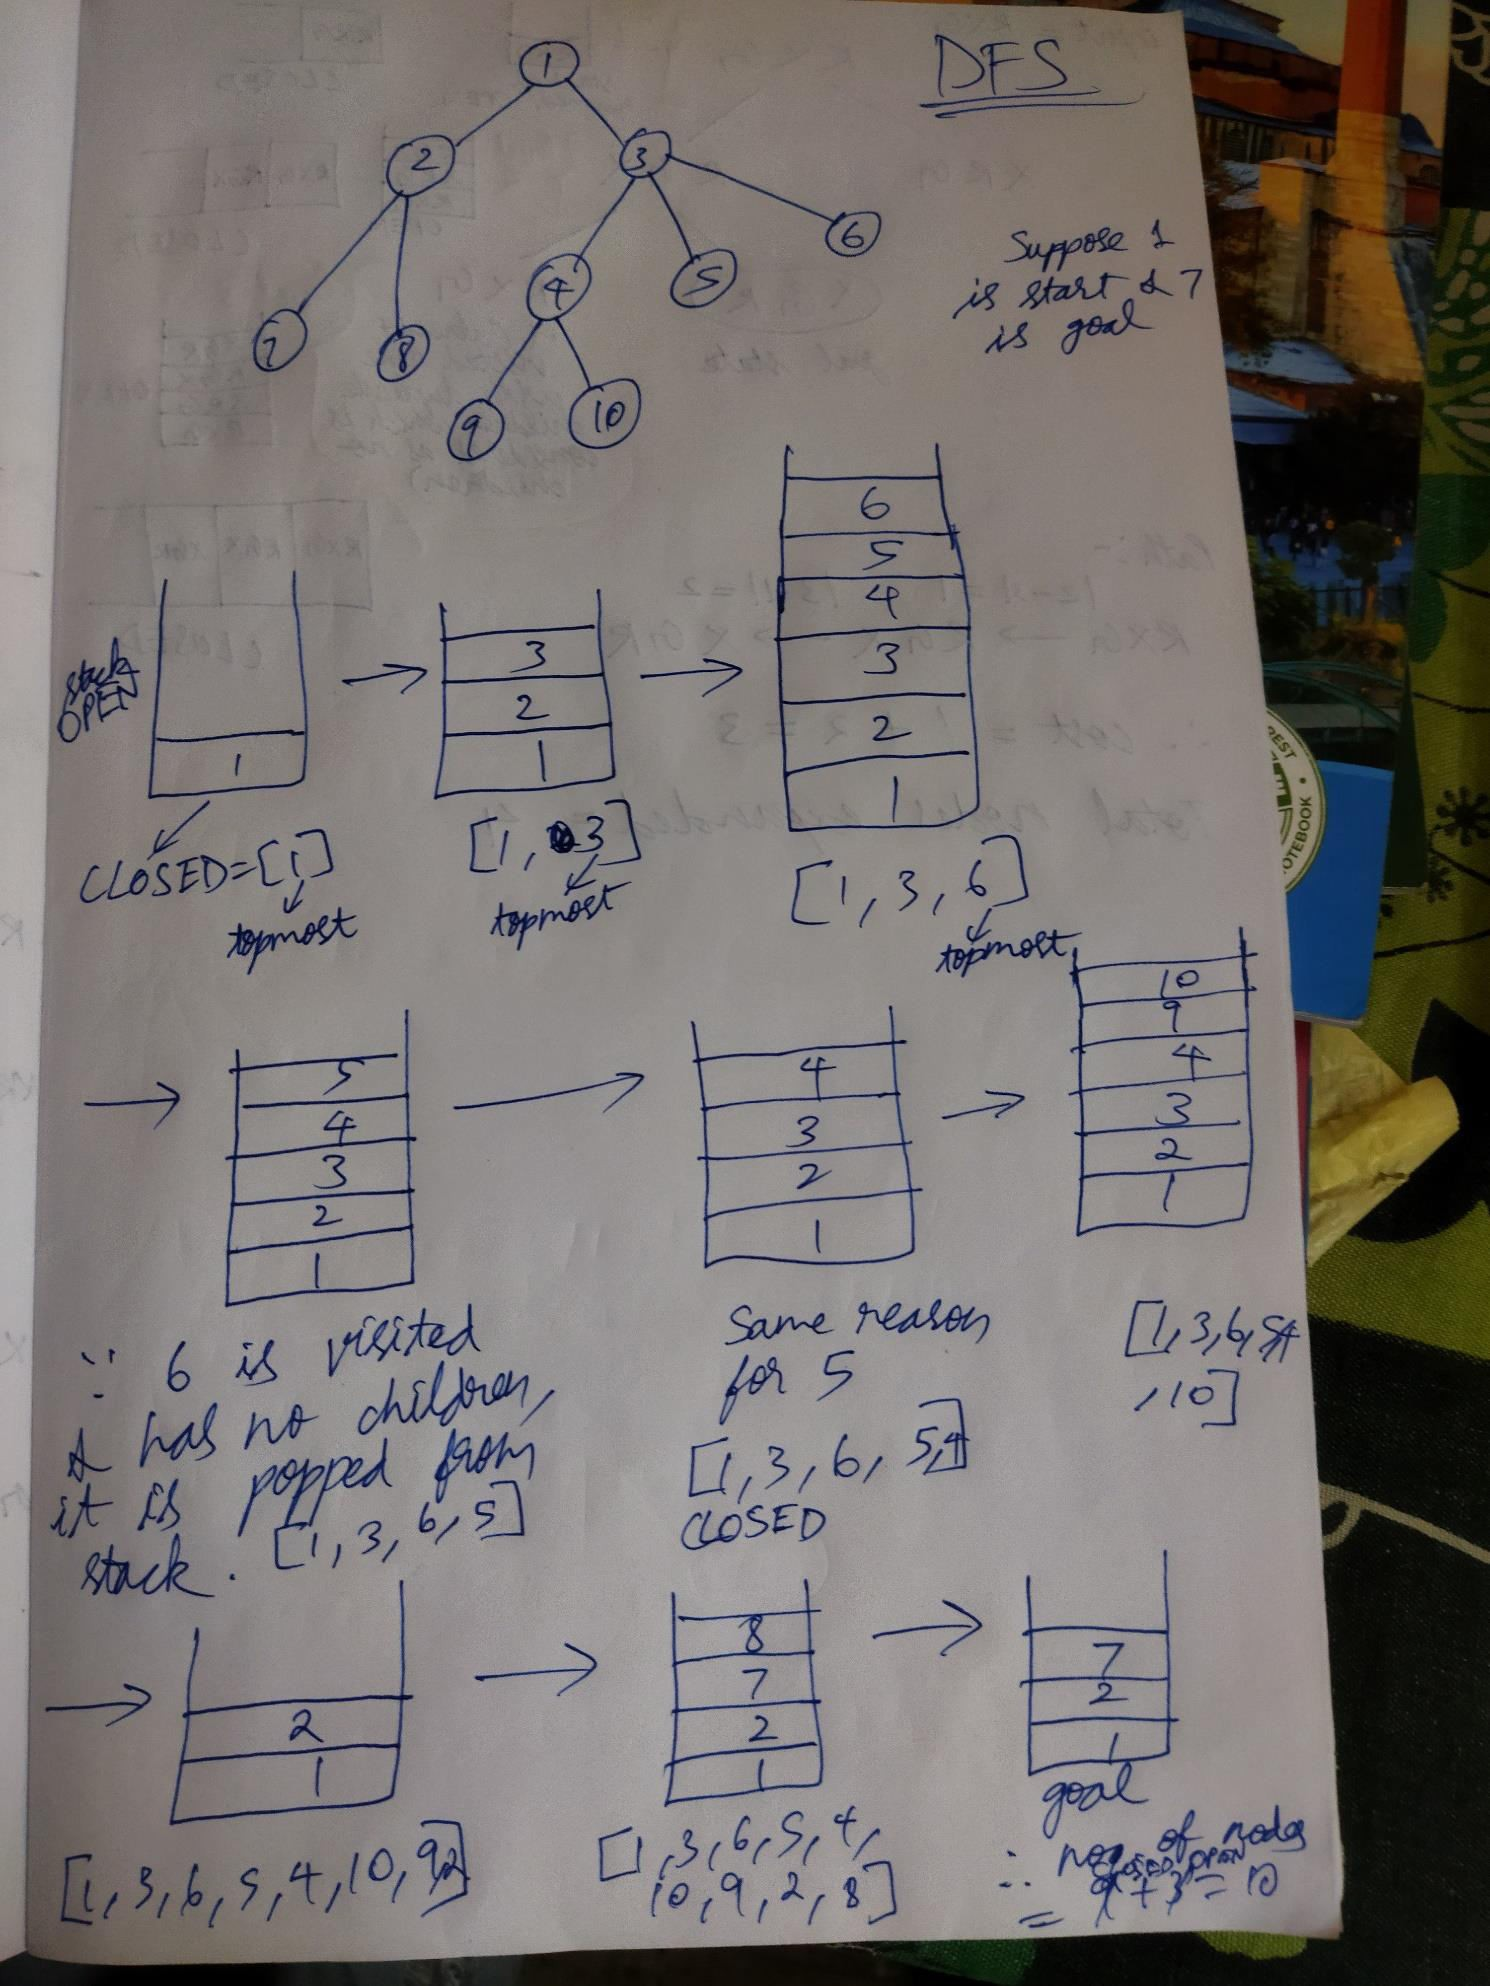 DFS
1
2
3
6
4
5
7
8
9
10
Suppose 1
is start & 7
is goal
stack
OPEN
1
CLOSED=[1]
topmost
3
2
1
[1, 3]
topmost
6
5
4
3
2
1
[1, 3, 6]
topmost
5
4
3
2
1
∵ 6 is visited
& has no children,
it is popped from
stack. [1, 3, 6, 5]
4
3
2
1
Same reason
for 5
[1, 3, 6, 5,4]
CLOSED
10
9
4
3
2
1
[1, 3, 6, 5,4
, 10]
2
1
[1, 3, 6, 5, 4, 10, 9,2]
8
7
2
1
[1, 3, 6, 5, 4,
10, 9, 2, 8]
7
2
1
goal
∴ of nodes
CLOSED OPEN
= 9 + = 10
NOTEBOOK